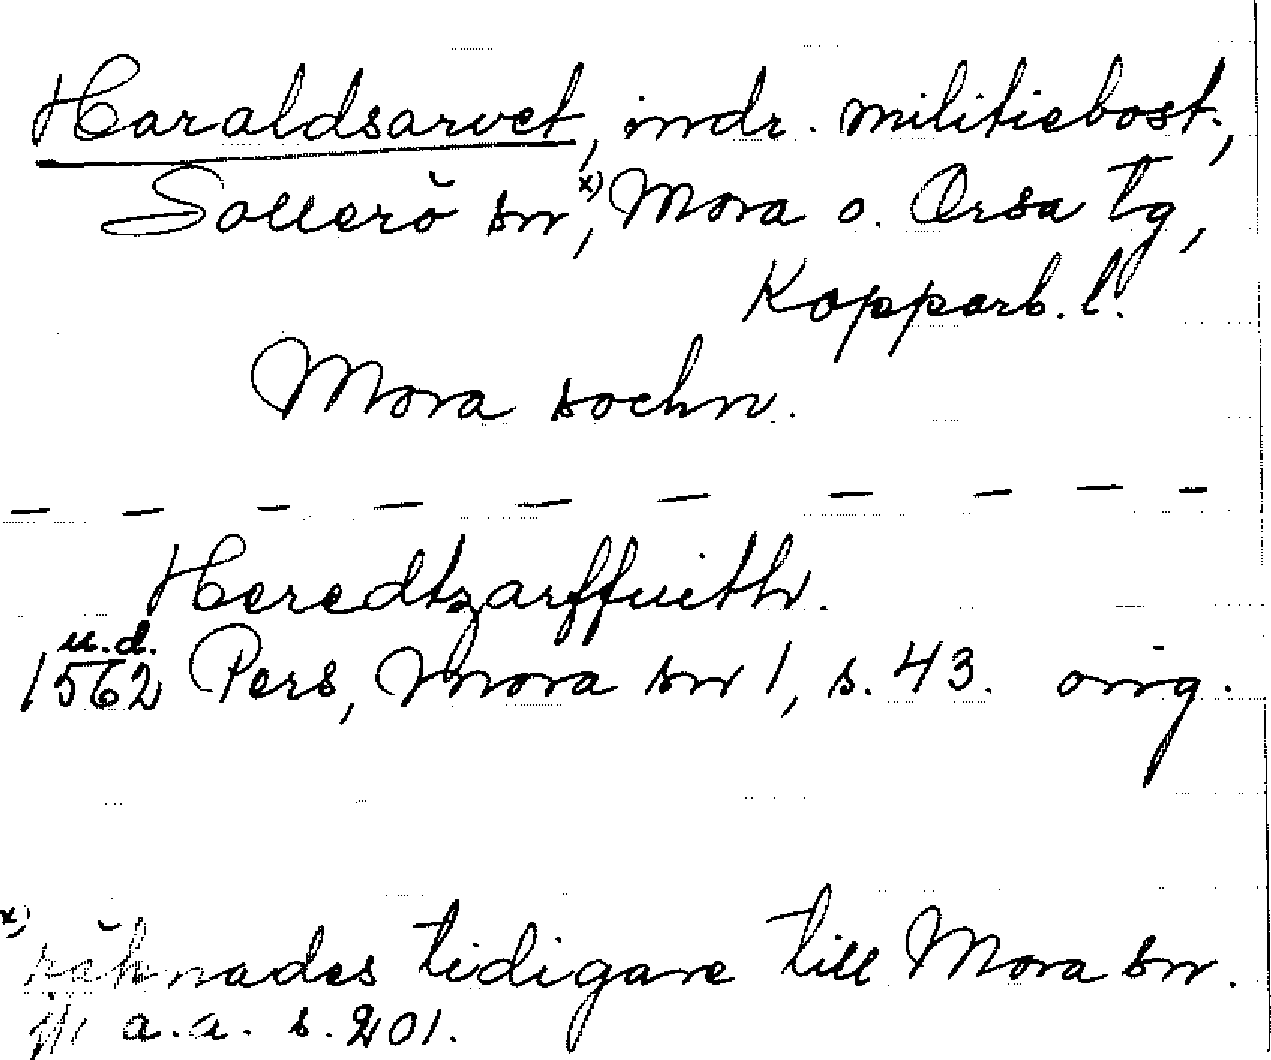 Haraldsarvet, indr. militiebost.,
Sollerö sn x), Mora o. Orsa tg,
Kopparb. l.
Mora sochn.
Heredtzarffueth.
u.d.
1562 Pers, Mora sn 1, s. 43. orig.
x) räknades tidigare till Mora sn.
jfr a.a. s. 201.